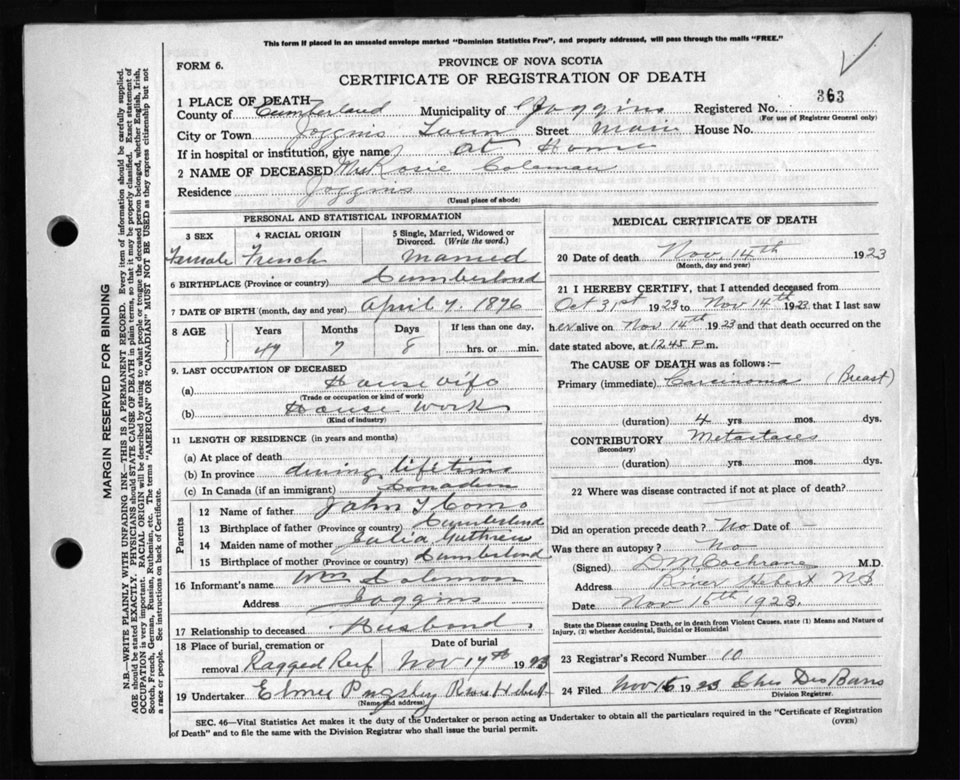 This form if placed in an unsealed envelope marked "Dominion Statistics Free", and properly addressed, will pass through the mails "FREE."
FORM 6.
PROVINCE OF NOVA SCOTIA
CERTIFICATE OF REGISTRATION OF DEATH
1 PLACE OF DEATH—
County of Cumberland Municipality of Joggins Registered No. 363
(For use of Registrar General only)
City or Town Joggins Town Street Main House No.
If in hospital or institution, give name at Home
2 NAME OF DECEASED Mrs Rosie Coleman
Residence Joggins
(Usual place of abode)
PERSONAL AND STATISTICAL INFORMATION
3 SEX 4 RACIAL ORIGIN 5 Single, Married, Widowed or Divorced. (Write the word.)
Female French Married
6 BIRTHPLACE (Province or country) Cumberland
7 DATE OF BIRTH (month, day and year) April 7. 1876
8 AGE Years Months Days If less than one day,
47 7 8 hrs. or min.
9. LAST OCCUPATION OF DECEASED
(a) Housewife
(Trade or occupation or kind of work)
(b) House Work
(Kind of industry)
11 LENGTH OF RESIDENCE (in years and months)
(a) At place of death
(b) In province during lifetime
(c) In Canada (if an immigrant) Canadian
Parents
12 Name of father John T Como
13 Birthplace of father (Province or country) Cumberland
14 Maiden name of mother Julia
15 Birthplace of mother (Province or country) Cumberland
16 Informant's name Wm Coleman
Address Joggins
17 Relationship to deceased Husband
18 Place of burial, cremation or removal Ragged Reef Date of burial Nov 17th 1923
19 Undertaker Elmer Pugsley River Hebert
(Name and address)
MEDICAL CERTIFICATE OF DEATH
20 Date of death Nov. 14th 1923
(Month, day and year)
21 I HEREBY CERTIFY, that I attended deceased from
Oct 31st 1923 to Nov 14th 1923 that I last saw
her alive on Nov 14th 1923 and that death occurred on the
date stated above, at 12.45 P.m.
The CAUSE OF DEATH was as follows:—
Primary (immediate) Carcinoma (Breast)
(duration) 4 yrs. mos. dys.
CONTRIBUTORY Metastases
(Secondary)
(duration) yrs. mos. dys.
22 Where was disease contracted if not at place of death?
Did an operation precede death? No Date of -
Was there an autopsy? No
(Signed) D M Cochrane M.D.
Address River Hebert N.S.
Date Nov 15th 1923.
State the Disease causing Death, or in death from Violent Causes, state (1) Means and Nature of
Injury, (2) whether Accidental, Suicidal or Homicidal
23 Registrar's Record Number 10
24 Filed Nov 16 1923 Chas Des Barres
Division Registrar.
SEC. 46—Vital Statistics Act makes it the duty of the Undertaker or person acting as Undertaker to obtain all the particulars required in the "Certificate of Registration
of Death" and to file the same with the Division Registrar who shall issue the burial permit. (OVER)
MARGIN RESERVED FOR BINDING
N.B.—WRITE PLAINLY WITH UNFADING INK—THIS IS A PERMANENT RECORD. Every item of information should be carefully supplied.
AGE should be stated EXACTLY. PHYSICIANS should STATE CAUSE OF DEATH in plain terms, so that it may be properly classified. Exact statement of
OCCUPATION is very important. RACIAL ORIGIN will be described by stating to what people or tongue the deceased person belonged, whether English, Irish,
Scotch, French, German, Russian, Ruthenian, etc. The terms "AMERICAN" OR "CANADIAN" MUST NOT BE USED as they express citizenship but not
a race or people. See instructions on back of Certificate.